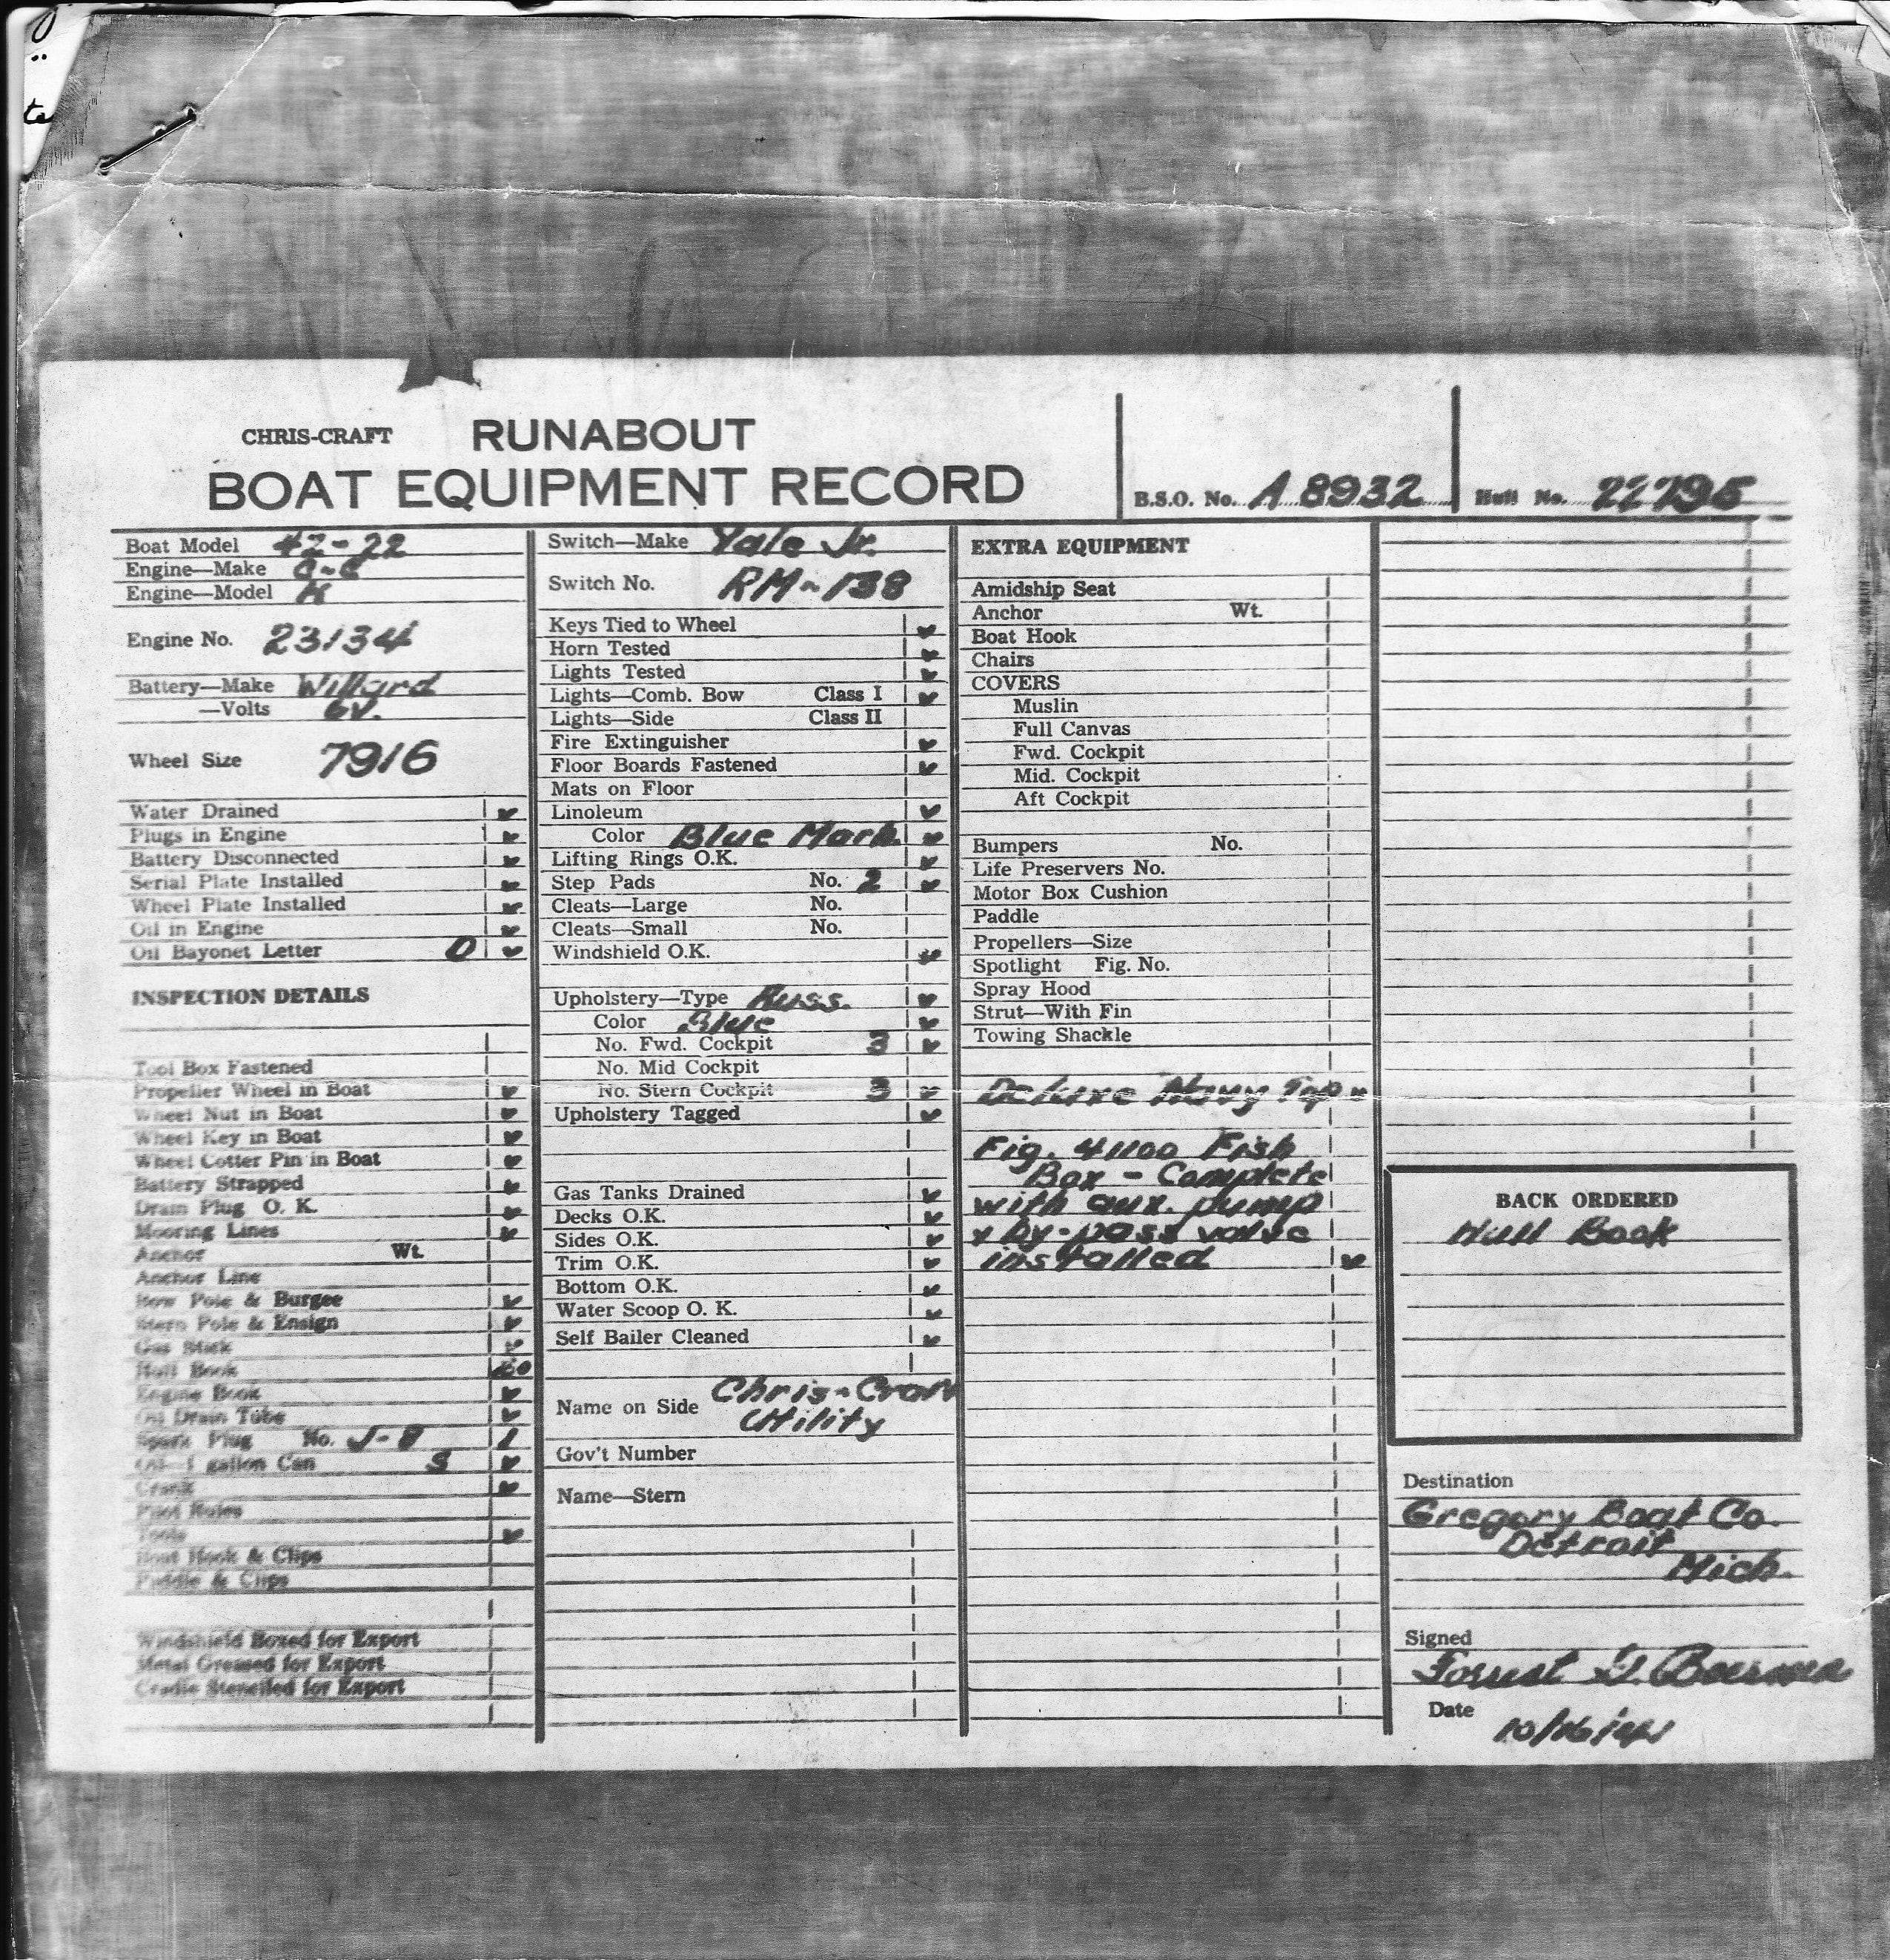 te
CHRIS-CRAFT RUNABOUT
BOAT EQUIPMENT RECORD
B.S.O. No. A 8932 Hull No. 22795
Boat Model 42-22
Engine—Make C-C
Engine—Model K
Engine No. 23134
Battery—Make Willard
—Volts 6V.
Wheel Size 7916
Water Drained
Plugs in Engine
Battery Disconnected
Serial Plate Installed
Wheel Plate Installed
Oil in Engine
Oil Bayonet Letter O
INSPECTION DETAILS
Tool Box Fastened
Propeller Wheel in Boat
Wheel Nut in Boat
Wheel Key in Boat
Wheel Cotter Pin in Boat
Battery Strapped
Drain Plug O. K.
Mooring Lines
Anchor Wt.
Anchor Line
Bow Pole & Burgee
Stern Pole & Ensign
Gas Stick
Hull Book BO
Engine Book
Oil Drain Tube
Spark Plug No. J-8 1
Oil—1 gallon Can S
Crank
Pilot Rules
Tools
Boat Hook & Clips
Paddle & Clips
Windshield Boxed for Export
Metal Greased for Export
Cradle Stenciled for Export
Switch—Make Yale Jr.
Switch No. RM-138
Keys Tied to Wheel
Horn Tested
Lights Tested
Lights—Comb. Bow Class I
Lights—Side Class II
Fire Extinguisher
Floor Boards Fastened
Mats on Floor
Linoleum
Color Blue Marb.
Lifting Rings O.K.
Step Pads No. 2
Cleats—Large No.
Cleats—Small No.
Windshield O.K.
Upholstery—Type Russ.
Color Blue
No. Fwd. Cockpit 3
No. Mid Cockpit
No. Stern Cockpit 3
Upholstery Tagged
Gas Tanks Drained
Decks O.K.
Sides O.K.
Trim O.K.
Bottom O.K.
Water Scoop O. K.
Self Bailer Cleaned
Name on Side Chris-Craft
Utility
Gov't Number
Name—Stern
EXTRA EQUIPMENT
Amidship Seat
Anchor Wt.
Boat Hook
Chairs
COVERS
Muslin
Full Canvas
Fwd. Cockpit
Mid. Cockpit
Aft Cockpit
Bumpers No.
Life Preservers No.
Motor Box Cushion
Paddle
Propellers—Size
Spotlight Fig. No.
Spray Hood
Strut—With Fin
Towing Shackle
Deluxe Navy Top
Fig. 41100 Fish
Box - Complete
with aux. pump
& by-pass valve
installed
BACK ORDERED
Hull Book
Destination
Gregory Boat Co.
Detroit
Mich.
Signed
Forrest
Date 10/16/41